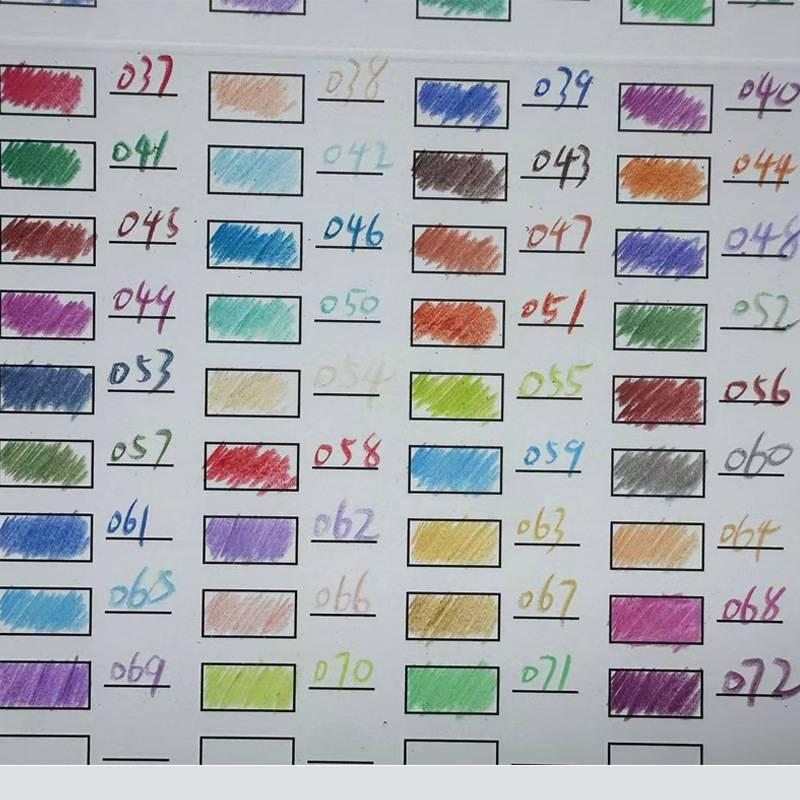 037 038 039 040
041 042 043 044
045 046 047 048
044 050 051 052
053 054 055 056
057 058 059 060
061 062 063 064
065 066 067 068
069 070 071 072